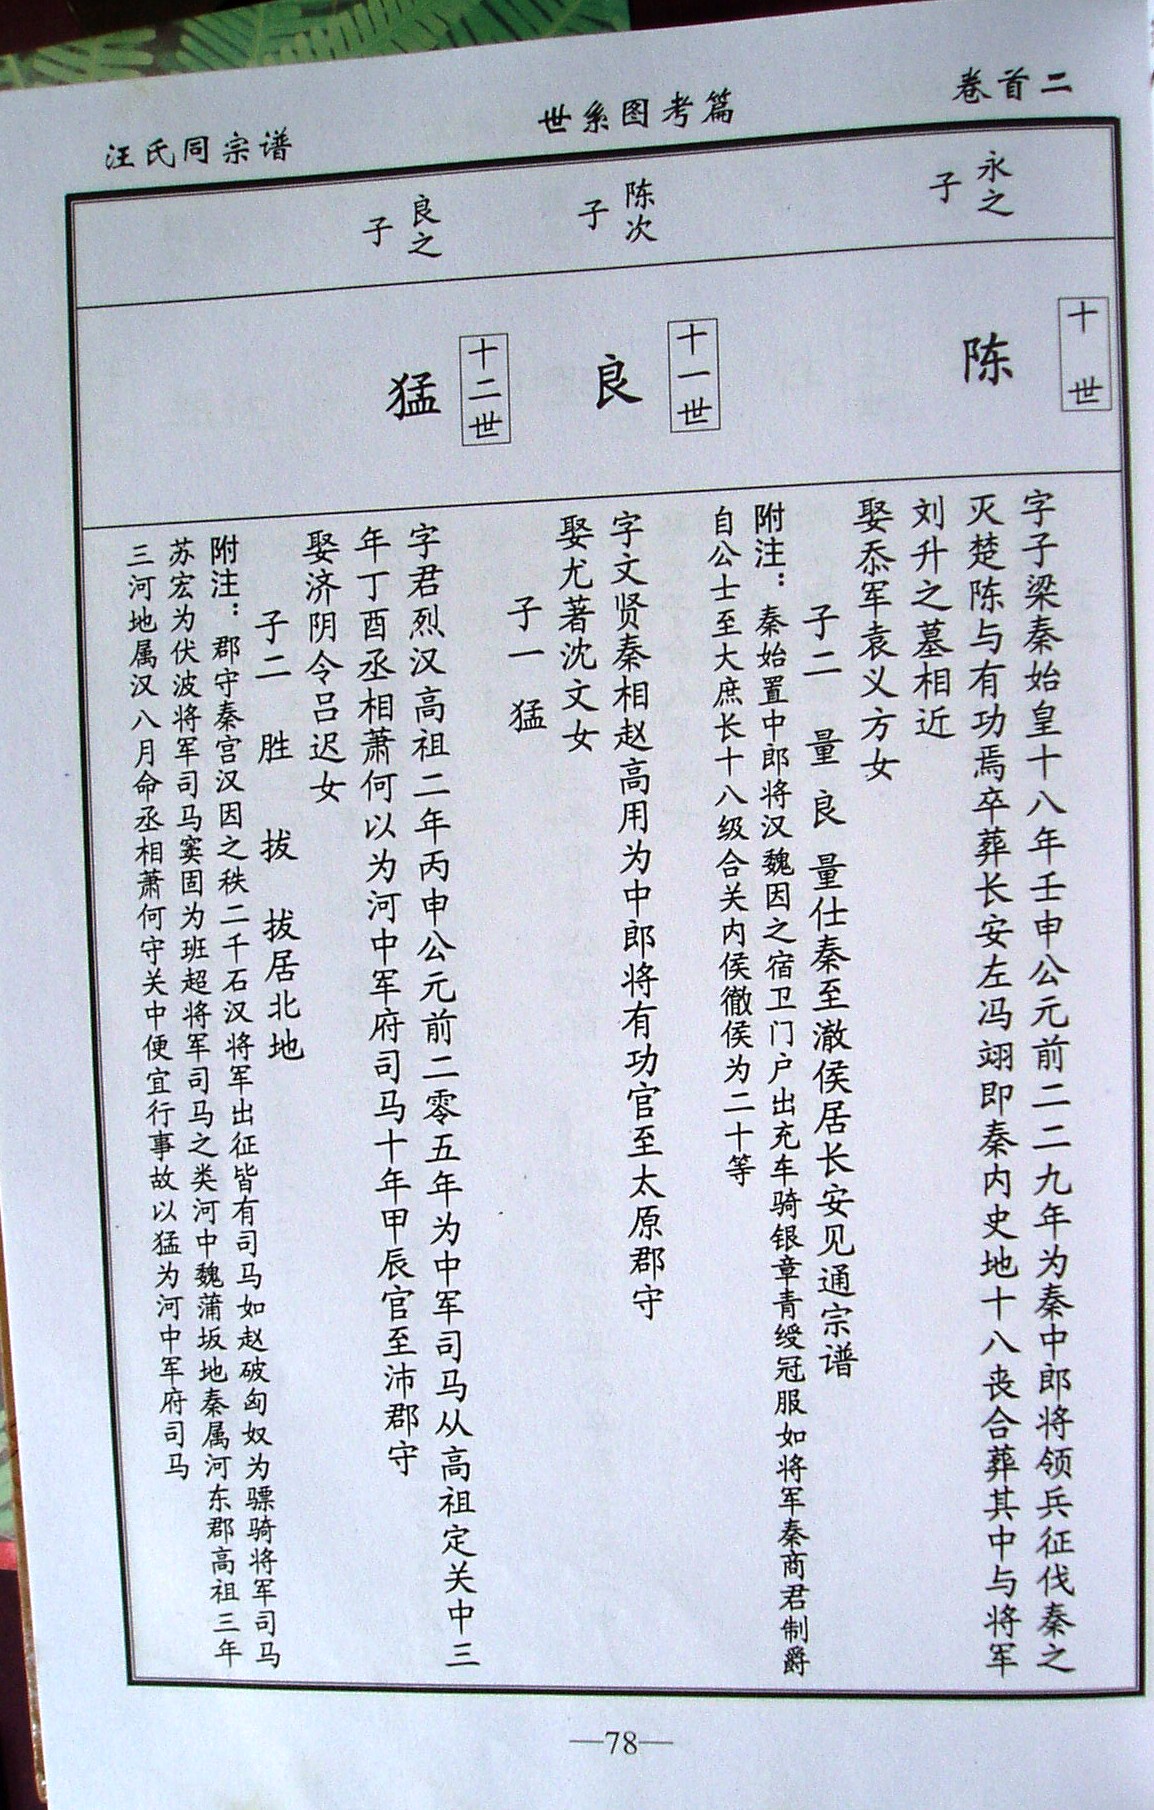 卷首二
世系图考篇
汪氏同宗谱
永之
子
十世
陈
字子梁秦始皇十八年壬申公元前二二九年为秦中郎将领兵征伐秦之
灭楚陈与有功焉卒葬长安左冯翊即秦内史地十八丧合葬其中与将军
刘升之墓相近
娶忝军袁义方女
子二 量 良 量仕秦至澈侯居长安见通宗谱
附注：秦始置中郎将汉魏因之宿卫门户出充车骑银章青绶冠服如将军秦商君制爵
自公士至大庶长十八级合关内侯徹侯为二十等
陈次
子
十一世
良
字文贤秦相赵高用为中郎将有功官至太原郡守
娶尤著沈文女
子一 猛
良之
子
十二世
猛
字君烈汉高祖二年丙申公元前二零五年为中军司马从高祖定关中三
年丁酉丞相萧何以为河中军府司马十年甲辰官至沛郡守
娶济阴令吕迟女
子二 胜 拔 拔居北地
附注：郡守秦宫汉因之秩二千石汉将军出征皆有司马如赵破匈奴为骠骑将军司马
苏宏为伏波将军司马窦固为班超将军司马之类河中魏蒲坂地秦属河东郡高祖三年
三河地属汉八月命丞相萧何守关中便宜行事故以猛为河中军府司马
—78—